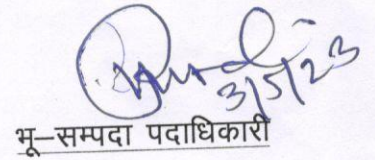 3/5/23
भू–सम्पदा पदाधिकारी